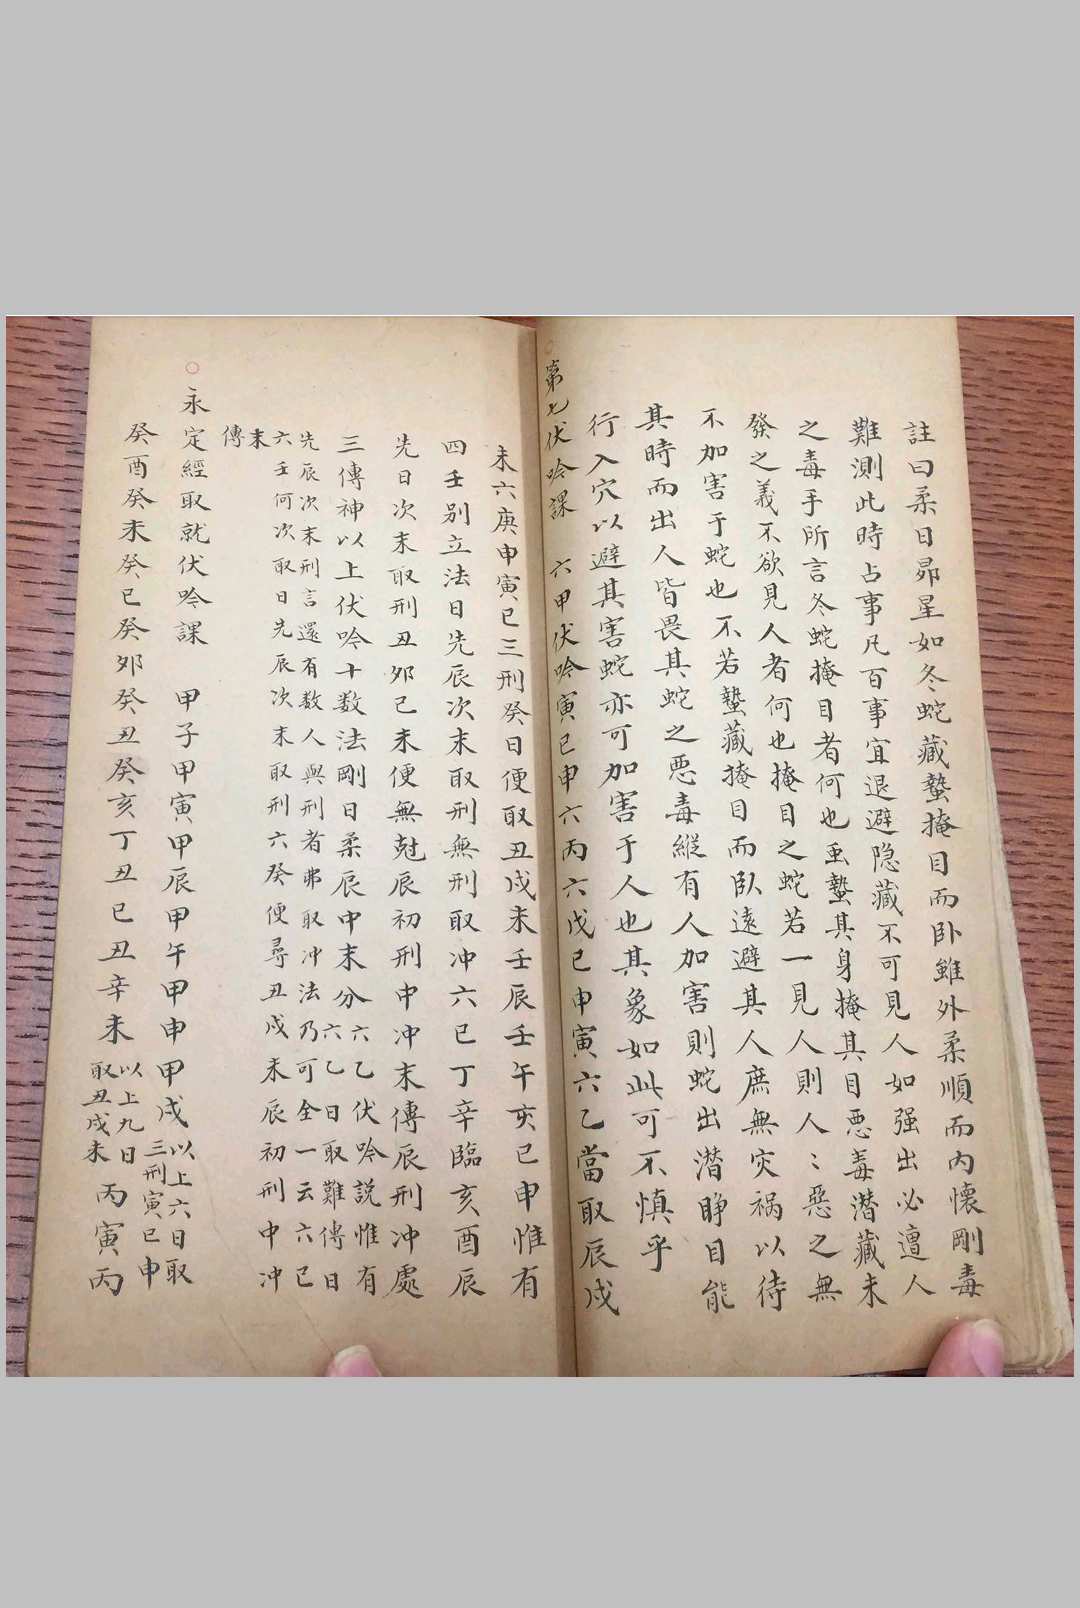 註曰柔日昴星如冬蛇藏蟄掩目而卧雖外柔順而内懷剛毒
難測此時占事凡百事宜退避隐藏不可見人如强出必遭人
之毒手所言冬蛇掩目者何也虫蟄其身掩其目悪毒潜藏未
發之義不欲見人者何也掩目之蛇若一見人則人〻惡之無
不加害于蛇也不若蟄藏掩目而卧遠避其人庶無灾祸以待
其時而出人皆畏其蛇之悪毒縱有人加害則蛇出潜睁目能
行入穴以避其害蛇亦可加害于人也其象如此可不慎乎
○第七伏吟課 六甲伏吟寅巳申六丙六戊巳申寅六乙當取辰戌
未六庚申寅巳三刑癸日便取丑戌未壬辰壬午亥巳申惟有
四壬别立法日先辰次末取刑無刑取冲六巳丁辛臨亥酉辰
先日次末取刑丑夘已未便無尅辰初刑中冲末傳辰刑冲處
三傳神以上伏吟十数法剛日柔辰中末分六乙伏吟説惟有
六乙日取難傳日
先辰次末刑言還有数人與刑者弗取冲法乃可全一云六已
六壬何次取日先辰次末取刑六癸便尋丑戌未辰初刑中冲
末
傳
○永定經取就伏吟課 甲子甲寅甲辰甲午甲申甲戌以上六日取
三刑寅巳申
癸酉癸未癸巳癸夘癸丑癸亥丁丑巳丑辛未以上九日
取丑戌未丙寅丙